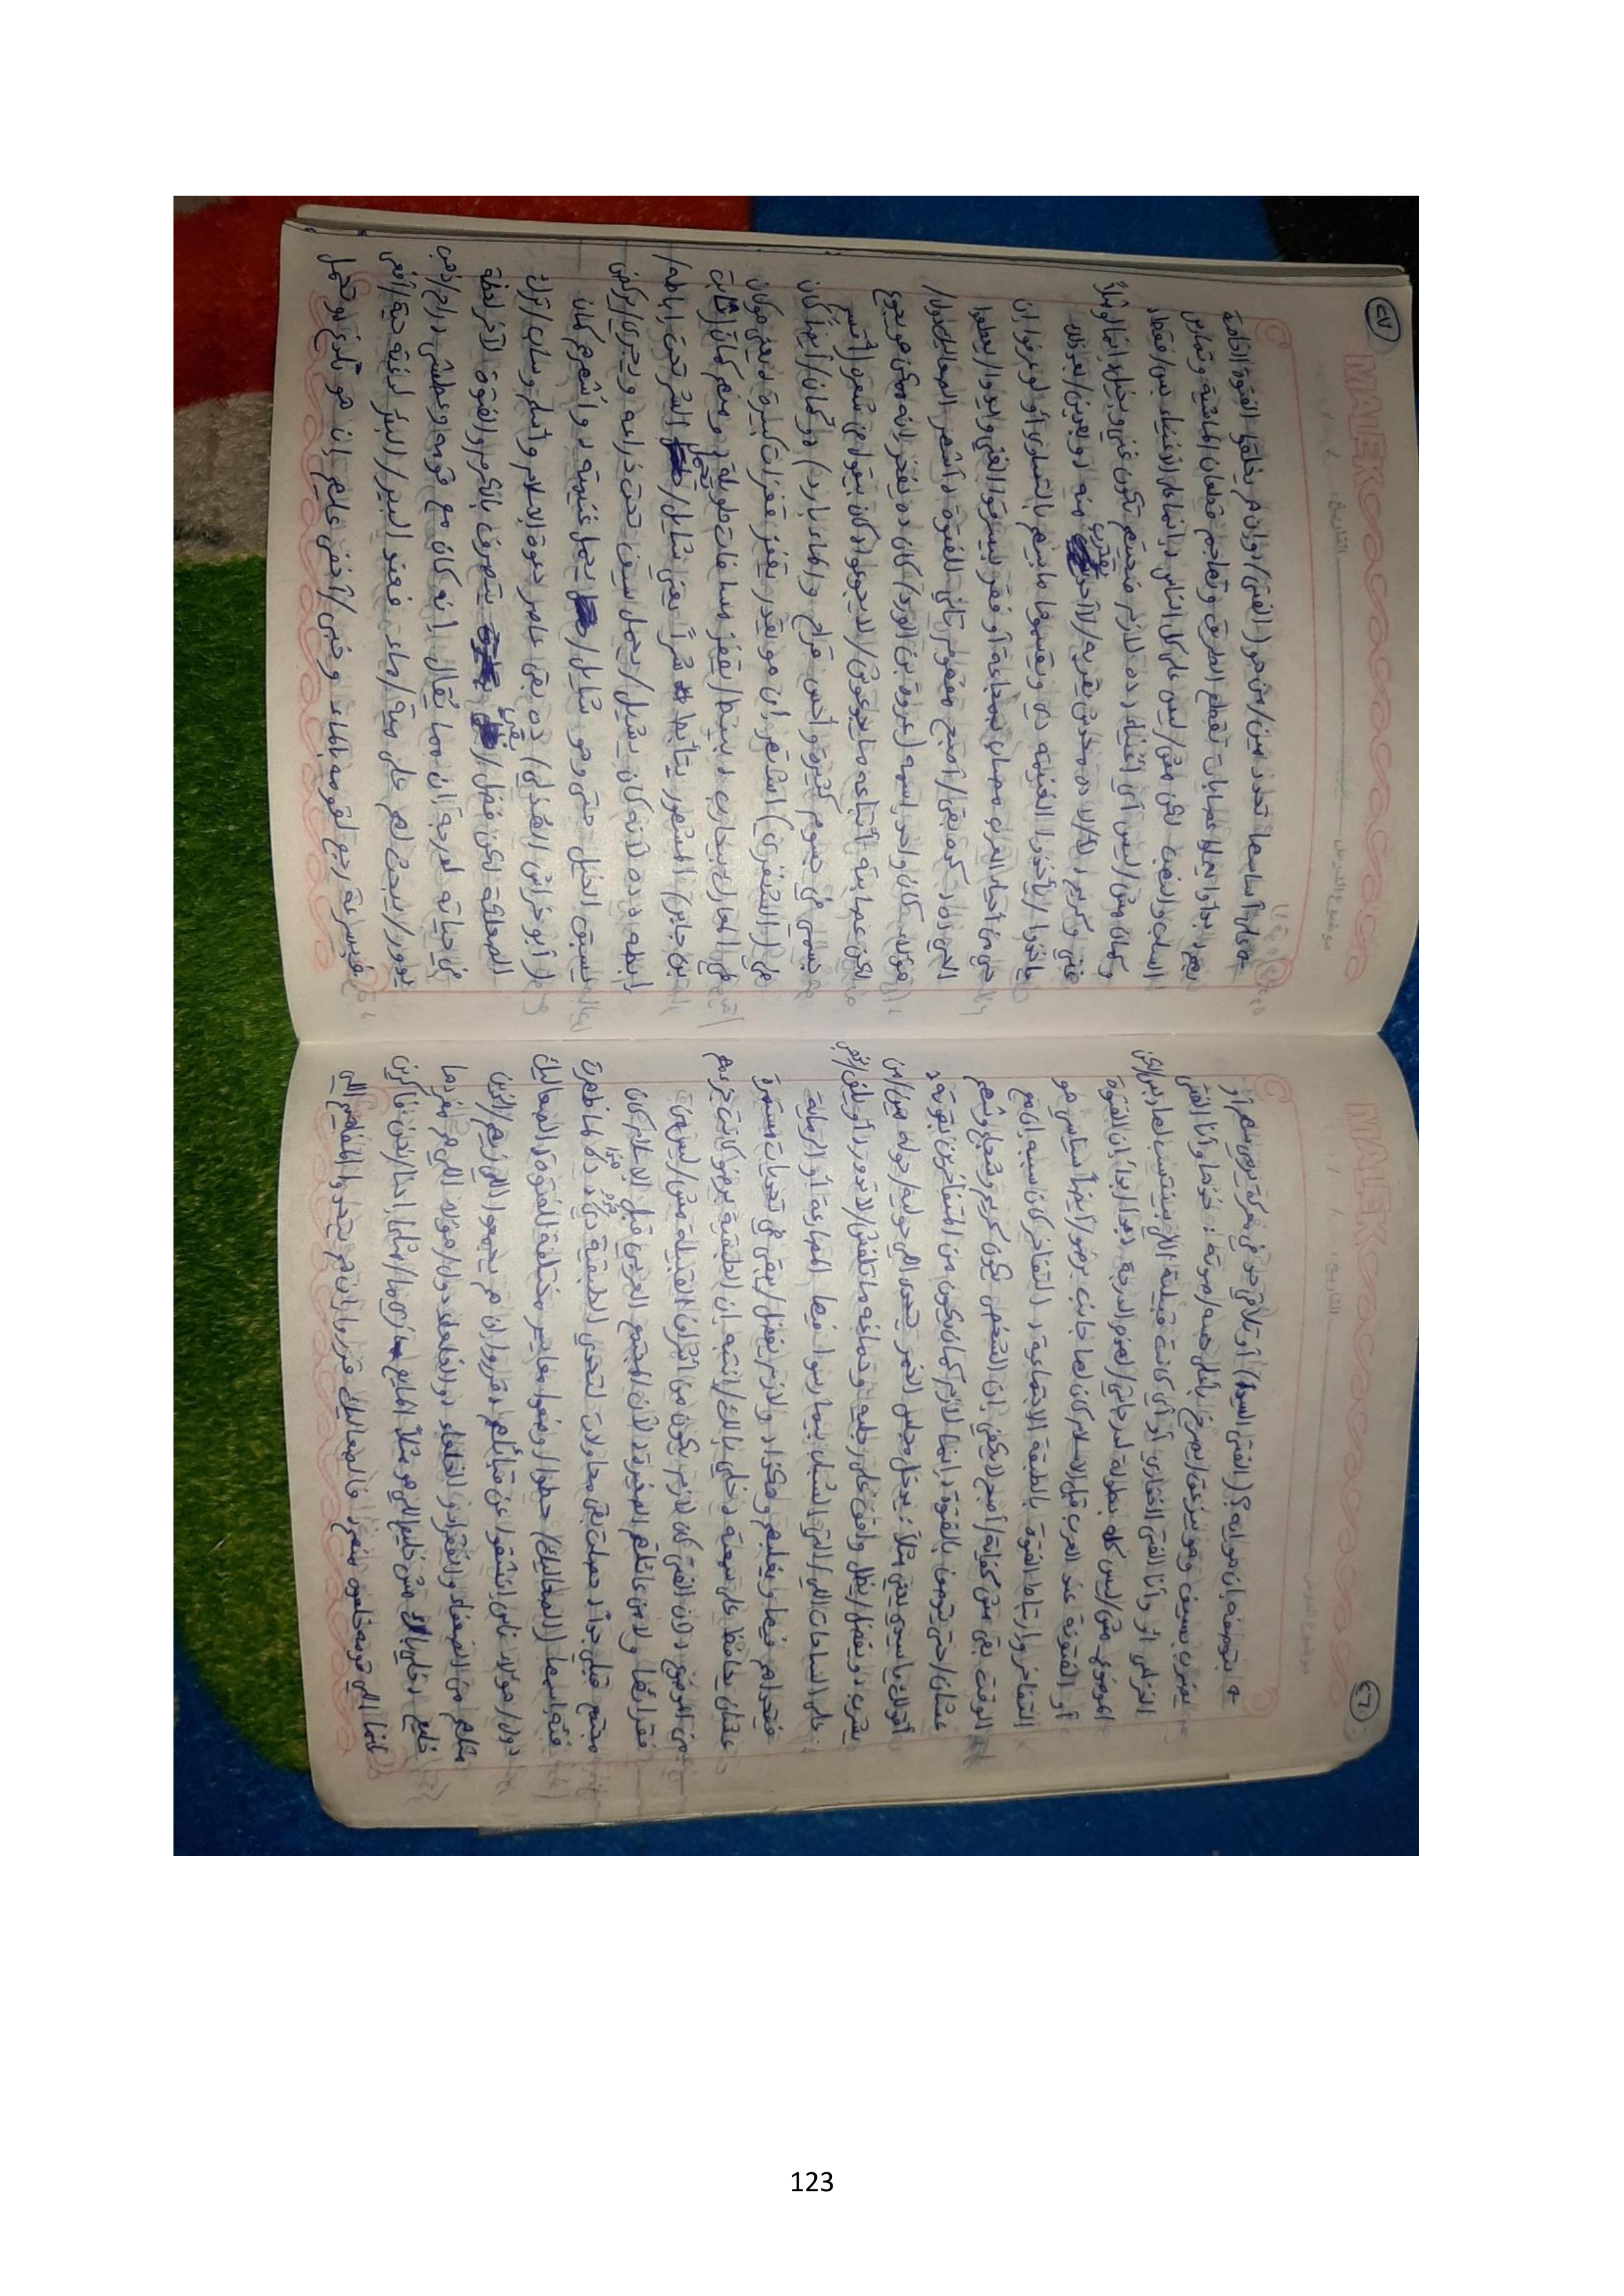 ٢٦
MALEK
التاريخ:
موضوع الدرس
بتوصفه إن هو إيه؟ (الفتى السيد) أو تلاقي حد في معركة يرمي سهم أو
يضرب بسيف وهو بيزعق/يصرخ بأعلى حسه/صوته: خذها وأنا الفتى
الفزاري أو وأنا الفتى الغفاري أو أي كانت قبيلة اللي بينتسب لها بس/لكن
الموضوع مش/ليس كله بطولة لدرجاتي/لهذه الدرجة بعدا ابدا إن الفتوة
أو الفتونة عند العرب قبل الإسلام كان لها جانب برضو/أيضاً أساسي هو
التفاخر وارتباط الفتوة بالطبقة الاجتماعية، التفاخر كان سببه إن مع
الوقت بقى مش كفاية/أصبح لا يكفي إن الشخص يكون كريم وشجاع وشهم
عشان/حتى يتوصف بالفتوة، إنما لازم كمان يكون من المتفاخرين بقوته،
أقولك يا سيدي يعني مثلاً: يدخل مجلس الخمر يتحدى اللي حواليه/حوله مين/من
يشرب، ويفضل/يظل واقف على رجليه ودماغه ما تلفش/لا تدور أو يلف/يلف
على الساحات اللي/التي الشباب بيمارسوا فيها المصارعة أو الرماية
فيتحداهم فيها ويغلبهم وهكذا، ولازم يفضل/يبقى في تحديات مستمرة
عشان يحافظ على سمعته، خلي بالك/انتبه إن الطبقية برضو كانت جزء مهم
من الموضوع، لأن الفتى كان لازم يكون من أشراف القبيلة مش/ليس من
فقرائها ولا من عائلاتهم الصغيرة، لأن المجتمع العربي قبل الإسلام كان
مجتمع قبلي جداً، حصلت بقى محاولات لتحدي الطبقية دي/هذه كلها ظهرت
فئة اسمها (الصعاليك) حطوا/وضعوا معايير مختلفة للفتوة، الصعاليك
دول/هؤلاء ناس انشقوا عن قبائلهم، قرروا إن هم يجمعوا اللي زيهم/الذين
مثلهم من الضعفاء والفقراء والخلعاء، والخلعاء دول/هؤلاء اللي هم مفردها
خليع، خلي بالك مش خليع اللي هو مثلاً المايع زي ما/مثلما إحنا/نحن فاكرين
إنما اللي قومه خلعوه منهم، فالصعاليك قرروا إن هم يتحدوا المفاهيم اللي
٢٧
MALEK
التاريخ:
موضوع الدرس
على أساسها تحدد مين/من هو (الفتى) وإن هم يخلقوا الفتوة الخاصة
بيهم، بدأوا يعملوا عصابات تقطع الطريق وتهاجم قطعان الماشية وتمارس
السلب والنهب لكن مش/ليس على كل الناس، إنما على الأغنياء بس/فقط،
وكمان مش/ليس أي أغنياء، ده لازم ضحيتهم تكون غني وبخيل، إنما لو مثلاً
غني وكريم، لأ/لا ده محدش يقربه/لا أحد يقترب منه، وبعدين/بعد ذلك
ياخدوا/يأخذوا الغنيمة دي ويقسموها ما بينهم بالتساوي أو لو عرفوا إن
حي من أحياء العرب مصاب بمجاعة أو فقر بيسرقوا الغني ويودوا/يعطوا
الحي ده، كده بقى/أصبح مفهوم تاني للفتوة، أشهر الصعاليك دول/
هؤلاء كان واحد اسمه (عروة بن الورد) كان ده يفخر لأنه ممكن هو يجوع
لكن عصابته أتباعه ما يجوعوش/لا يجوعوا، كان بيقول في شعره (أقسم
جسمي في جسوم كثيرة وأحس قراح والماء بارد) دو كمان/أيضاً كان
في (الشنفرى) اشتهر إن هو يقدر يقفز قفزات كبيرة، يعني هو كان
في المعارك بيحارب، بينط/يقفز مسافات طويلة، ومنهم كمان (ثابت
ابن جابر) المشهور بـ تأبط شراً يعني شايل/يحمل الشر تحت إباطه/
إبطه، ده لأنه كان يشيل/يحمل سيف تحت ذراعه ويجري/يركض
يسبق الخيل حتى وهو شايل/يحمل غنيمة، وأشهرهم كمان
(أبو خراش الهذلي) ده بقى عاصر دعوة الإسلام وأسلم وساب/ترك
الصعلكة لكن فضل/بقي يتصرف بالكرم والفتوة لآخر لحظة
في حياته لدرجة إن مما يُقال إنه كان مع قومه وعطش، راح/ذهب
يدور/يبحث لهم على مية/ماء، فعند البير/البئر لدغته حية/أفعى
فبسرعة رجع لقومه بالماء وخبى/أخفى عليهم إن هو اتلدغ، لو تحمل